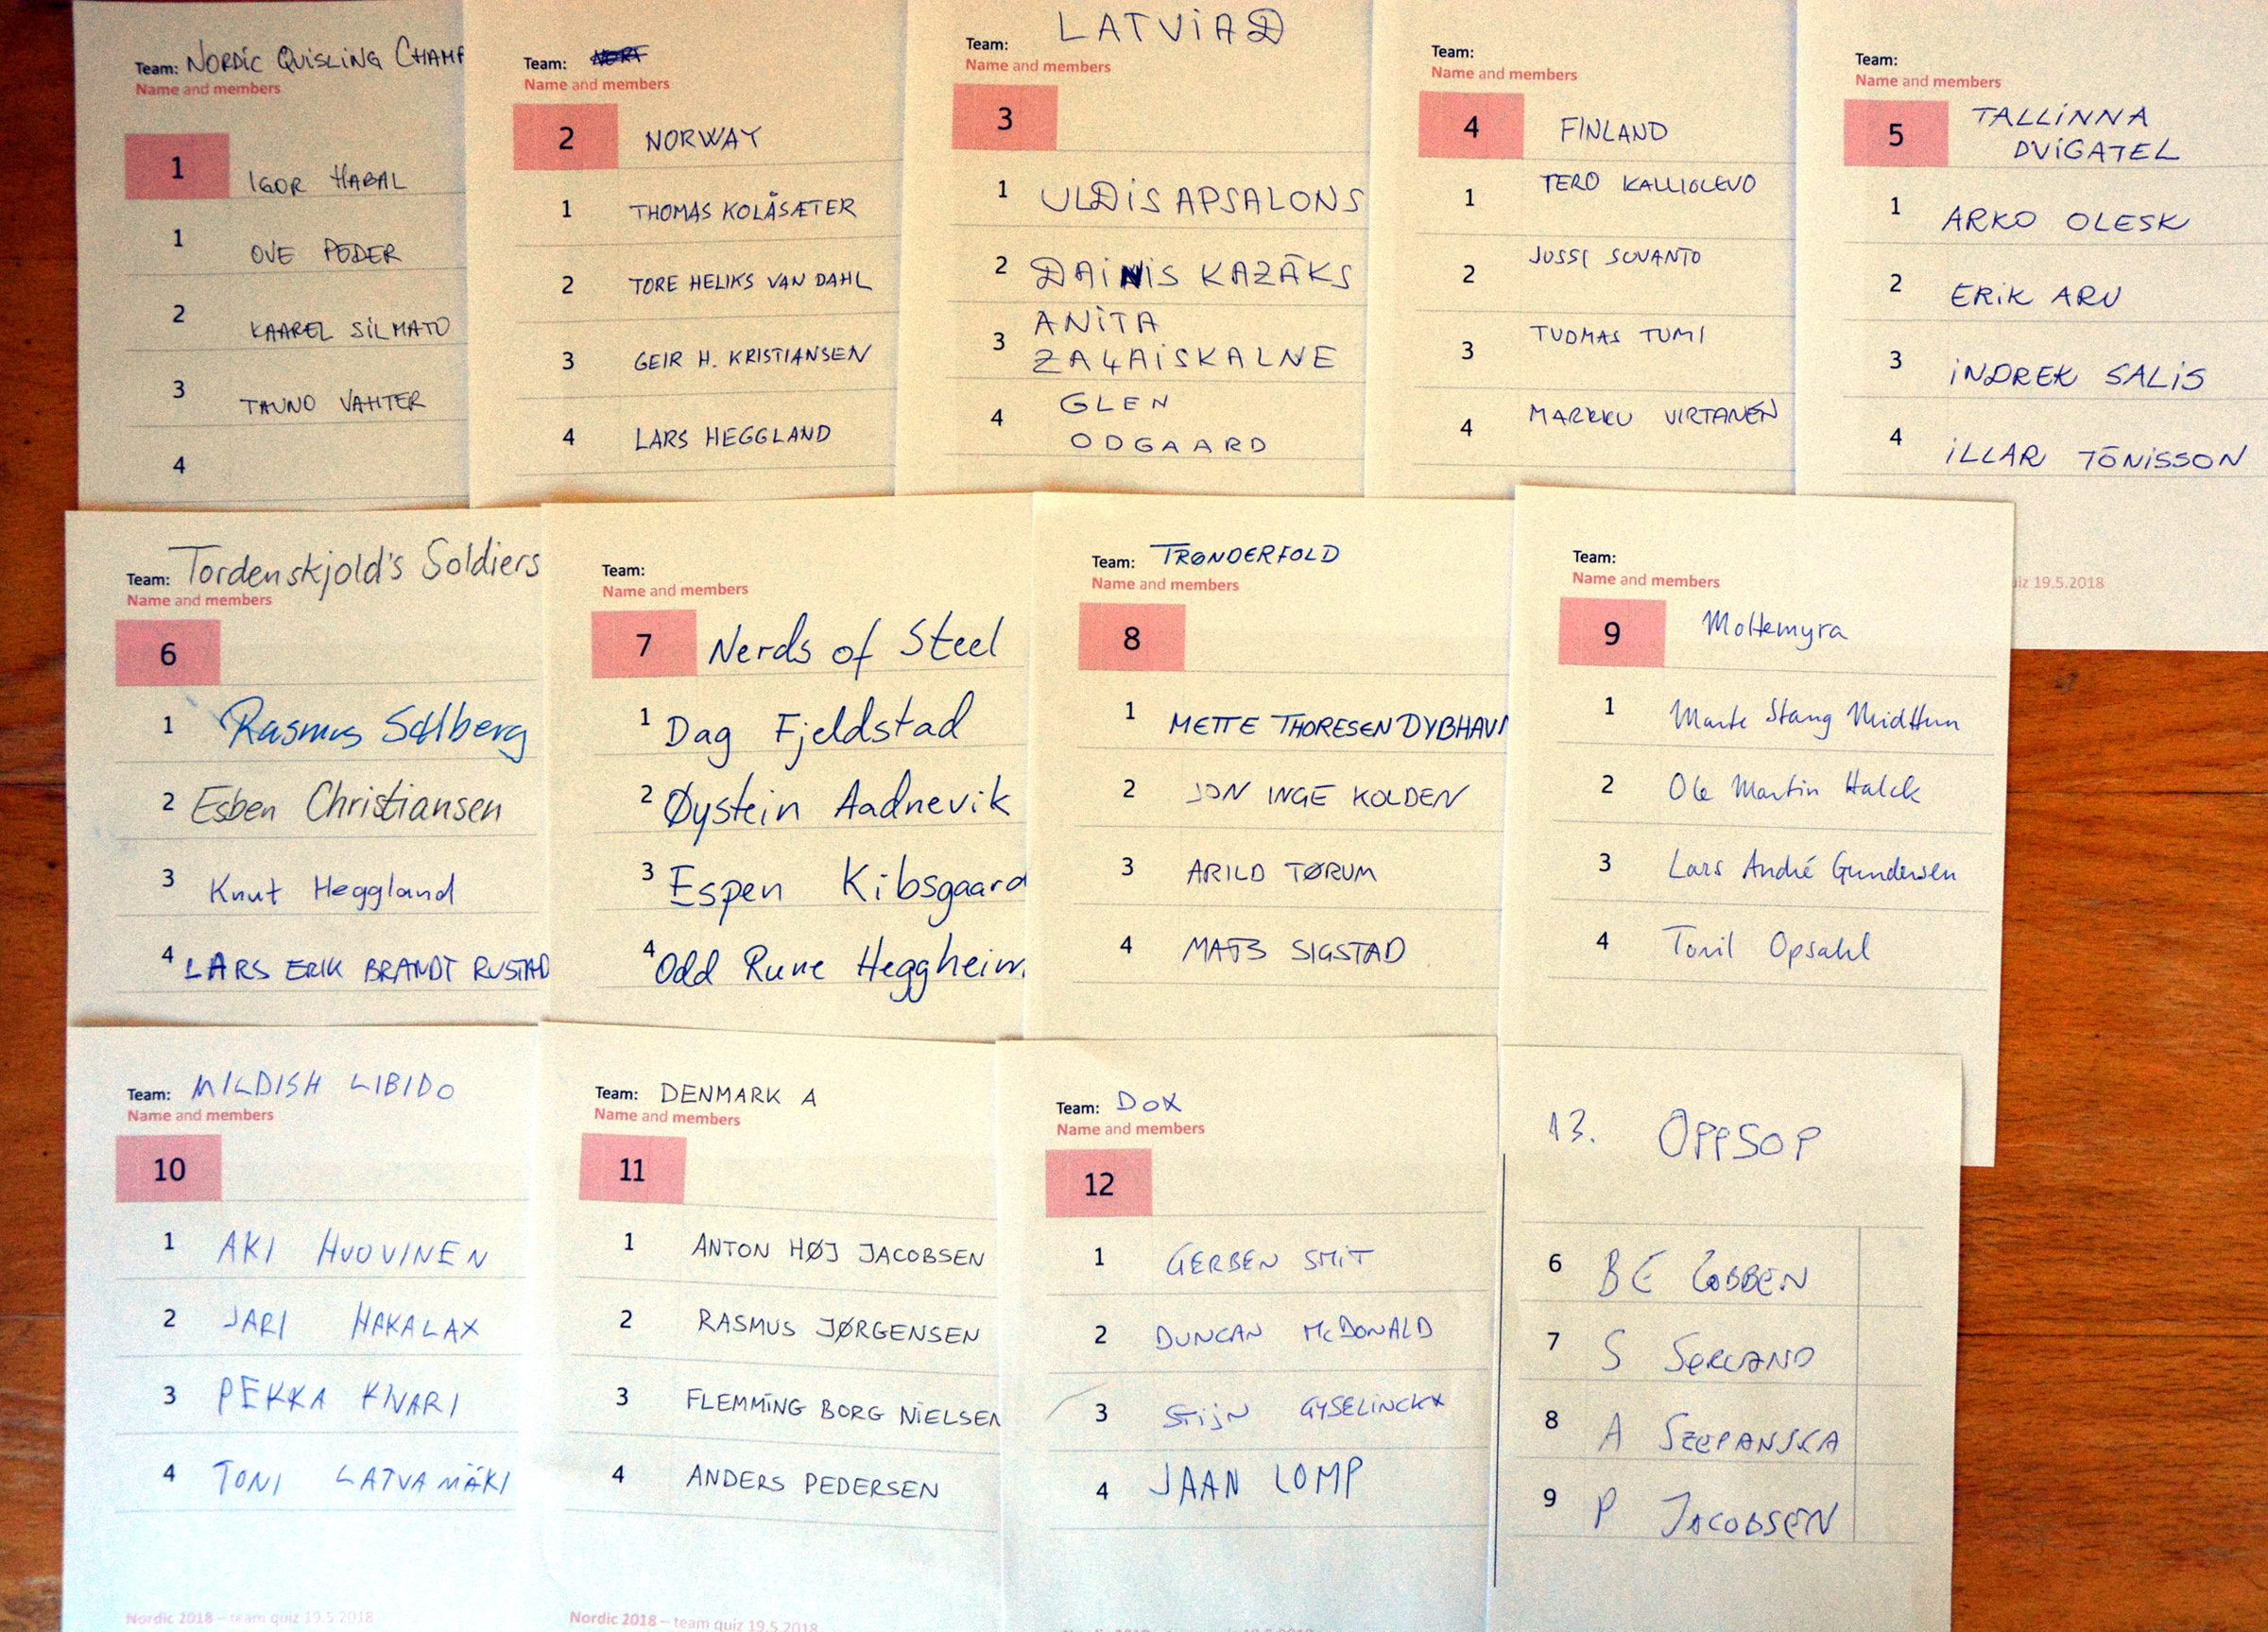 Team: NORDIC QUISLING CHAMP
Name and members
1
IGOR HABAL
1 OVE PÕDER
2 KAAREL SILMATO
3 TAUNO VAHTER
4
Team:
Name and members
2 NORWAY
1 THOMAS KOLÅSÆTER
2 TORE HELIKS VAN DAHL
3 GEIR H. KRISTIANSEN
4 LARS HEGGLAND
Team: LATVIAD
Name and members
3
1 ULDIS APSALONS
2 DAINIS KAZĀKS
3 ANITA
ZAĻAISKALNE
4 GLEN
ODGAARD
Team:
Name and members
4 FINLAND
1 TERO KALLIOLEVO
2 JUSSI SUVANTO
3 TUOMAS TUMI
4 MARKKU VIRTANEN
Team:
Name and members
5 TALLINNA
DVIGATEL
1 ARKO OLESK
2 ERIK ARU
3 INDREK SALIS
4 ILLAR TÕNISSON
iz 19.5.2018
Team: Tordenskjold's Soldiers
Name and members
6
1 Rasmus Sølberg
2 Esben Christiansen
3 Knut Heggland
4 LARS ERIK BRANDT RUSTAD
Team:
Name and members
7 Nerds of Steel
1 Dag Fjeldstad
2 Øystein Aadnevik
3 Espen Kibsgaard
4 Odd Rune Heggheim
Team: TRØNDERFOLD
Name and members
8
1 METTE THORESEN DYBHAVN
2 JON INGE KOLDEN
3 ARILD TØRUM
4 MATS SIGSTAD
Team:
Name and members
9 Moltemyra
1 Marte Stang Midttun
2 Ole Martin Halck
3 Lars André Gundersen
4 Toril Opsahl
Team: MILDISH LIBIDO
Name and members
10
1 AKI HUOVINEN
2 JARI HAKALAX
3 PEKKA KIVARI
4 TONI LATVAMÄKI
Nordic 2018 – team quiz 19.5.2018
Team: DENMARK A
Name and members
11
1 ANTON HØJ JACOBSEN
2 RASMUS JØRGENSEN
3 FLEMMING BORG NIELSEN
4 ANDERS PEDERSEN
Nordic 2018 – team quiz 19.5.2018
Team: DOX
Name and members
12
1 GERBEN SMIT
2 DUNCAN McDONALD
3 STIJN GYSELINCKX
4 JAAN LOMP
13. OPPSOP
6 BE COBBEN
7 S SERVANO
8 A SZCPANSKA
9 P JACOBSEN